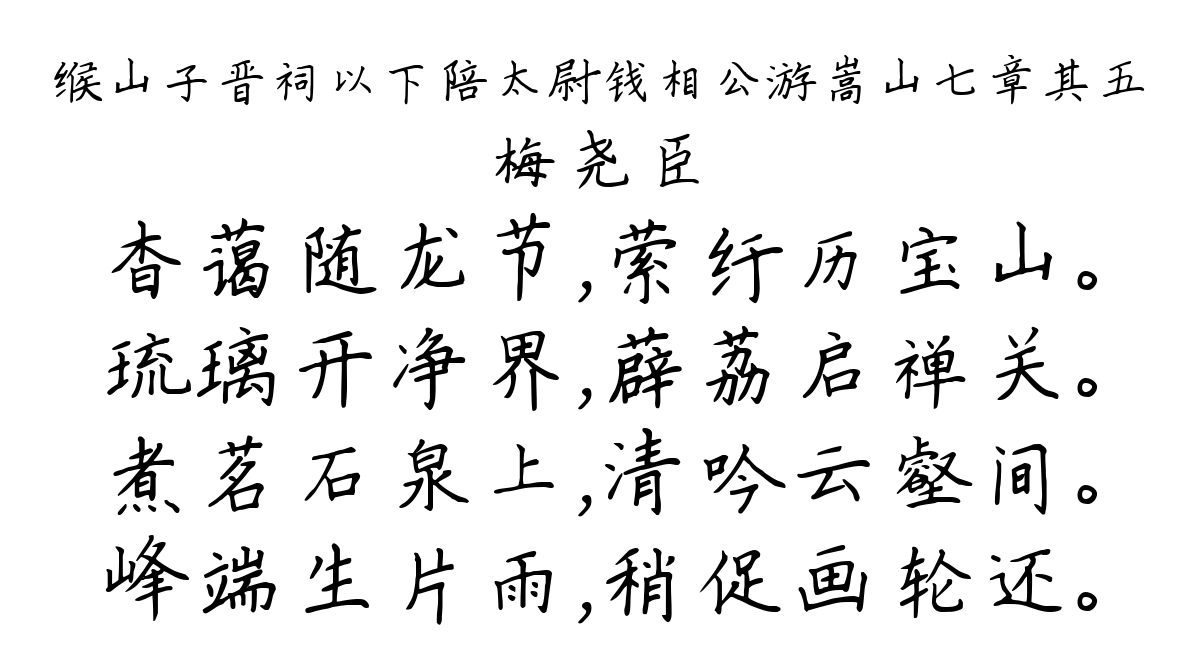 缑山子晋祠以下陪太尉钱相公游嵩山七章其五
梅尧臣
杳蔼随龙节,萦纡历宝山。
琉璃开净界,薜荔启禅关。
煮茗石泉上,清吟云壑间。
峰端生片雨,稍促画轮还。